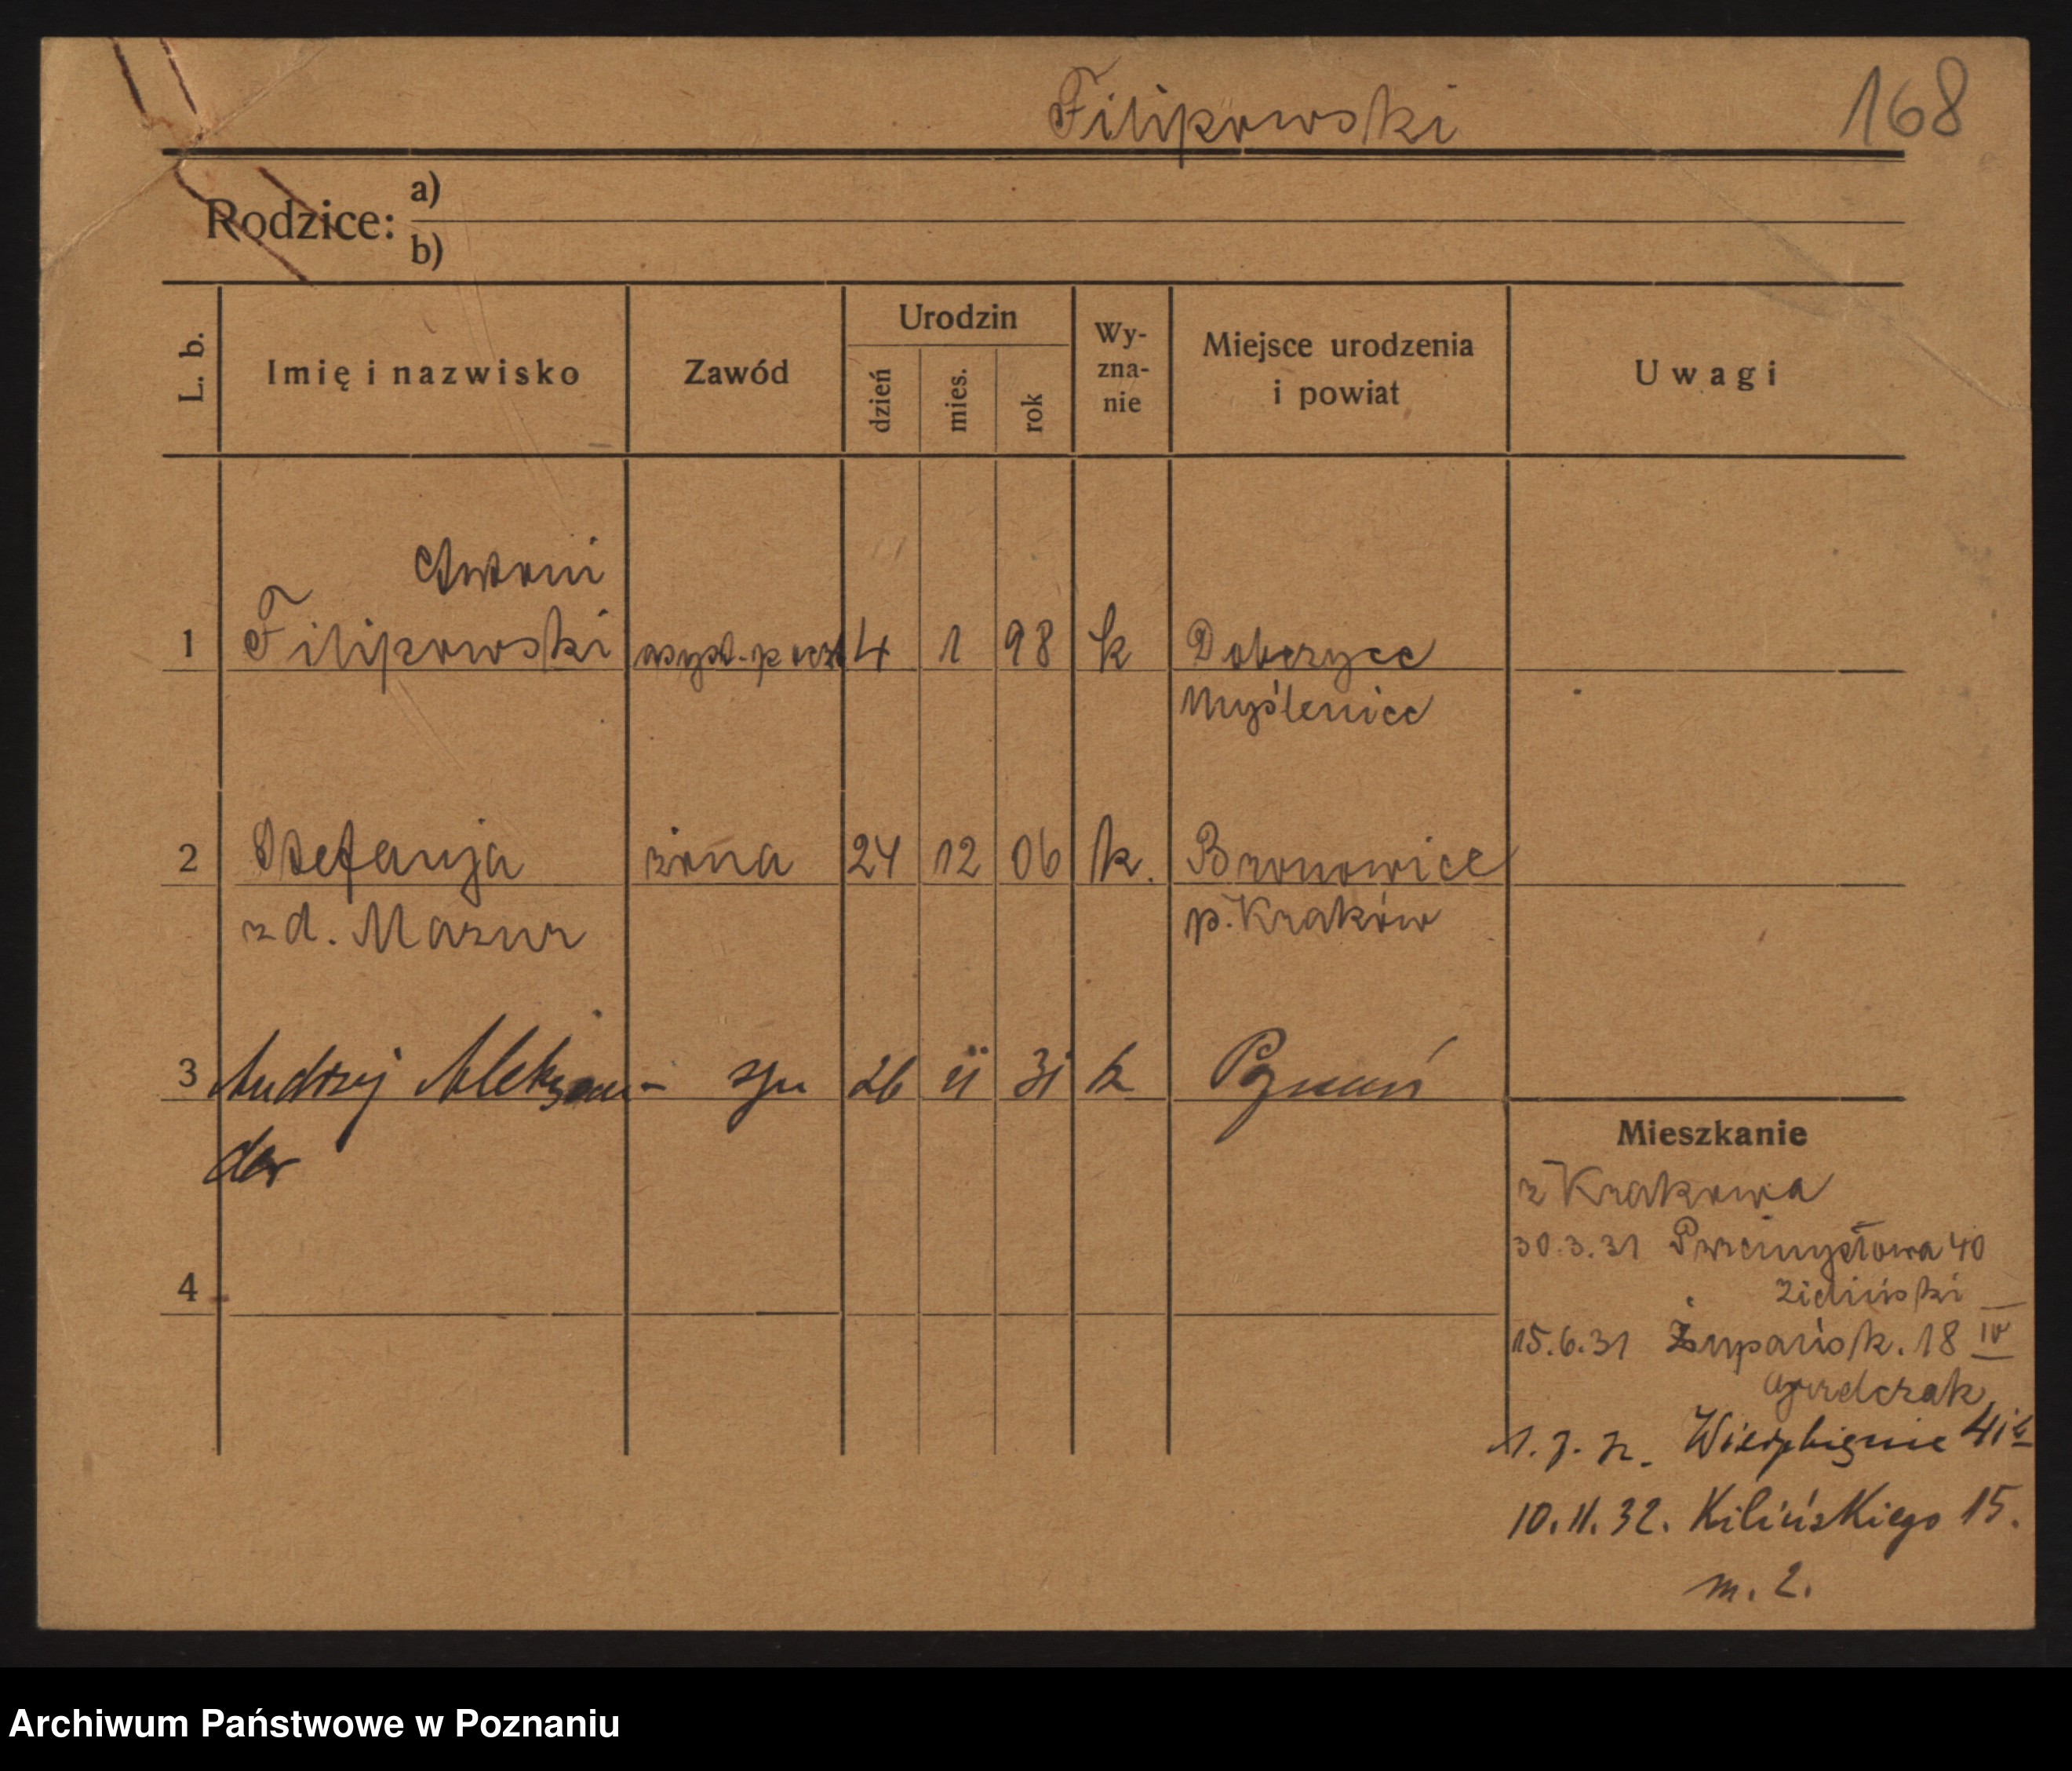 Filipowski 168
Rodzice: a)
b)
L. b. Imię i nazwisko Zawód Urodzin dzień mies. rok Wy-zna-nie Miejsce urodzenia i powiat Uwagi
Antoni
1 Filipowski asyst. poczt 4 1 98 k Dobczyce
Myślenice
2 Stefanja żona 24 12 06 k. Bronowice
z d. Mazur p. Kraków
3 Andrzej Aleksan- syn 26 11 31 k Poznań
der
Mieszkanie
z Krakowa
30.3.31 Przemysłowa 40
4
15.6.31 Żupańsk. 18 IV
Wierzbięcice
10.11.32. Kilińskiego 15.
m. 2.
Archiwum Państwowe w Poznaniu